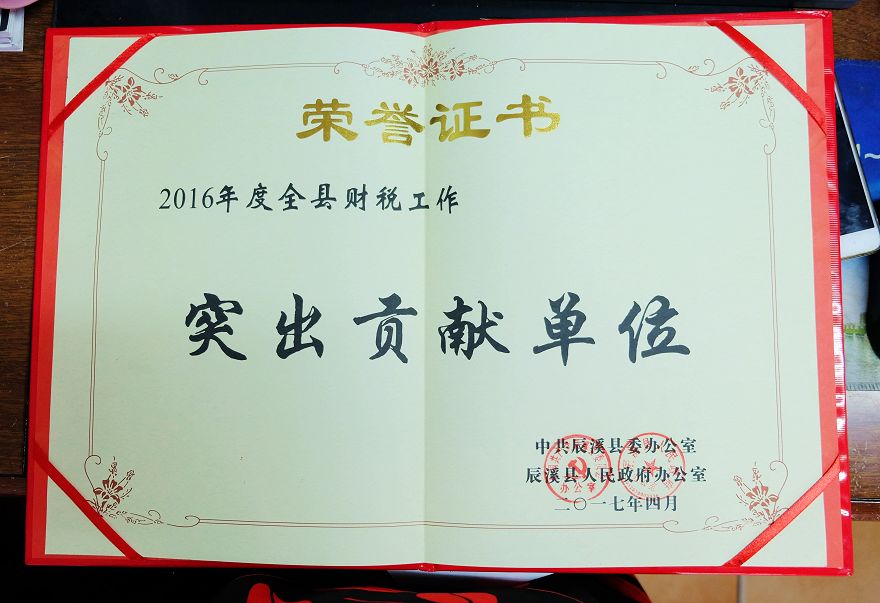 荣誉证书
2016年度全县财税工作
突出贡献单位
中共辰溪县委办公室
辰溪县人民政府办公室
二〇一七年四月
办公室